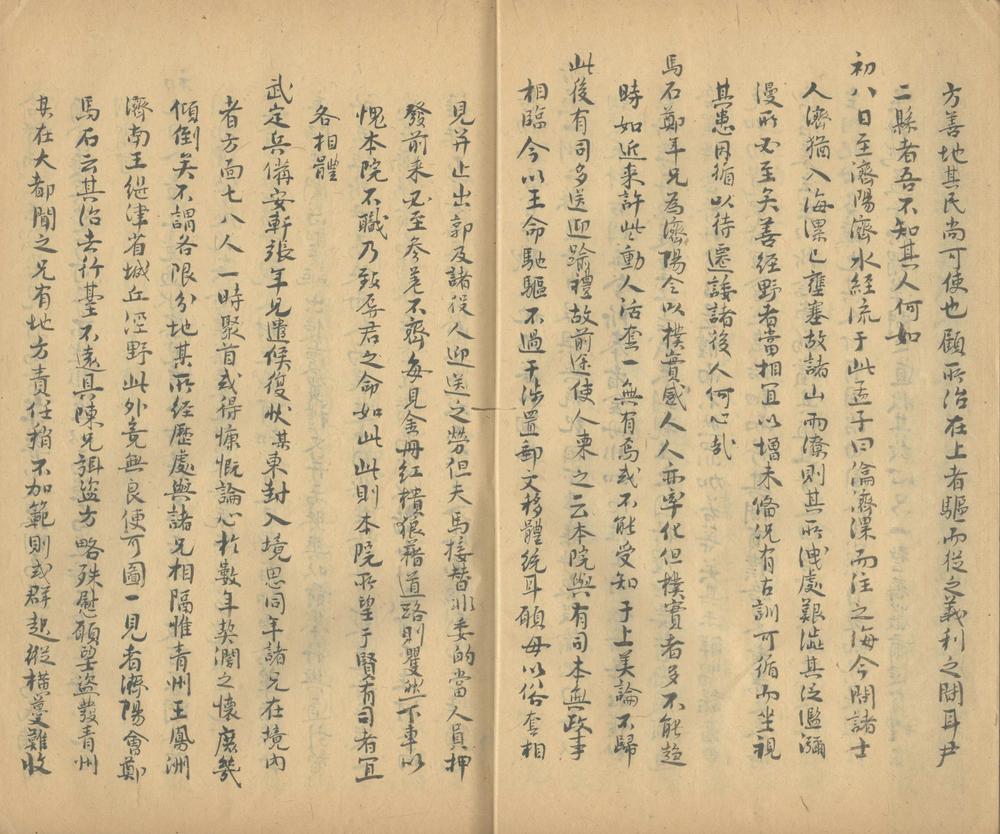 方善地其民尚可使也顧所治在上者驅而從之義利之閒耳尹
二縣者吾不知其人何如
初八日至濟陽濟水經流于此孟子曰瀹濟漯而注之海今閒諸士
人濟猶入海漯已壅塞故諸山雨潦則其所洩處艱澁其泛濫瀰
漫所必至矣善經野者當相宜以增未備况有古訓可循而坐視
其患因循以待遷諉諸後人何心哉
馬石鄭年兄為濟陽令以樸實感人人亦孚化但樸實者多不能趨
時如近来許些動人活套一無有焉或不能受知于上美論不歸
此後有司多送迎踰禮故前途使人柬之云本院與有司本無政事
相臨今以王命馳驅不過干涉置郵文移體統耳願毋以俗套相
見并止出郭及諸役人迎送之勞但夫馬接替須委的當人員押
發前来必至參差不齊每見金冊紅櫃狼藉道路則瞿然下車以
愧本院不職乃致辱君之命如此則本院所望于賢有司者宜
各相體
武定兵備安軒張年兄遣候復狀某東封入境思同年諸兄在境內
者方面七八人一時聚首或得慷慨論心於數年契濶之懷庶幾
傾倒矣不謂各限分地其所經歷處與諸兄相隔惟青州王鳳洲
濟南王繼津省城丘涇野此外竟無良便可圖一見者濟陽會鄭
馬石云其治去行臺不遠具陳兄弭盜方略殊慰願望盜發青州
其在大都聞之兄有地方責任稍不加範則或群起縱橫蔓難收